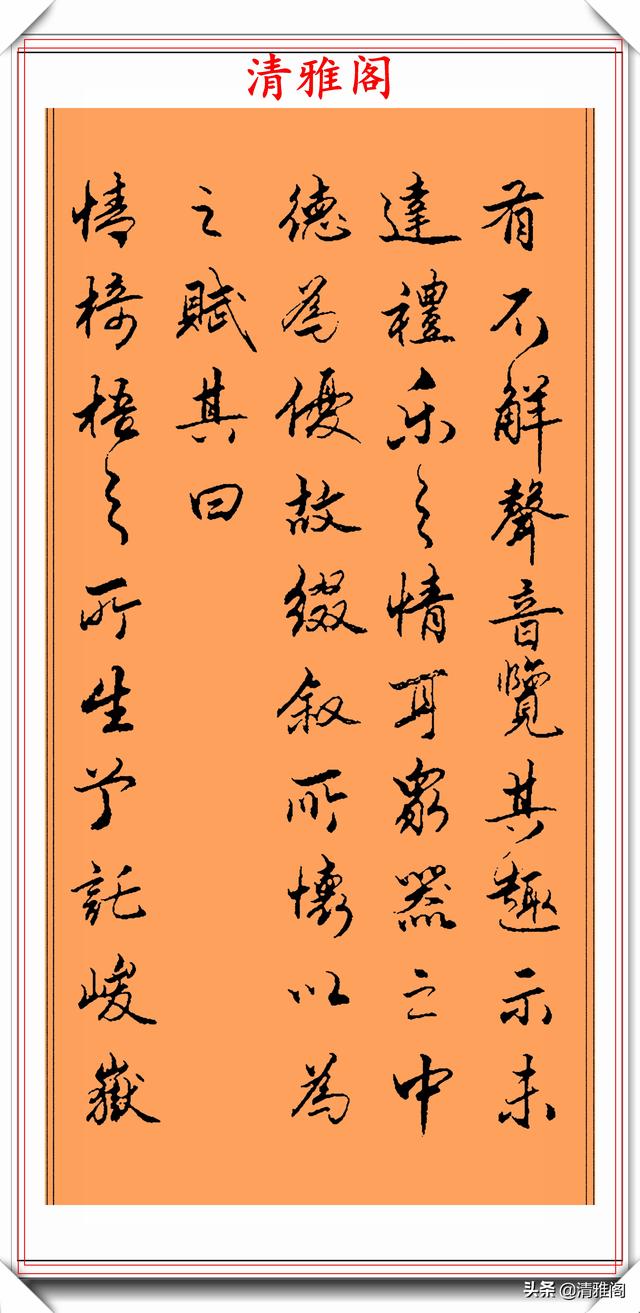 清雅阁
有不解聲音覽其趣示未
達禮乐之情耳衆器之中
德為優故綴叙所懷以為
之賦其曰
情椅梧之所生兮託峻嶽
头条 @清雅阁